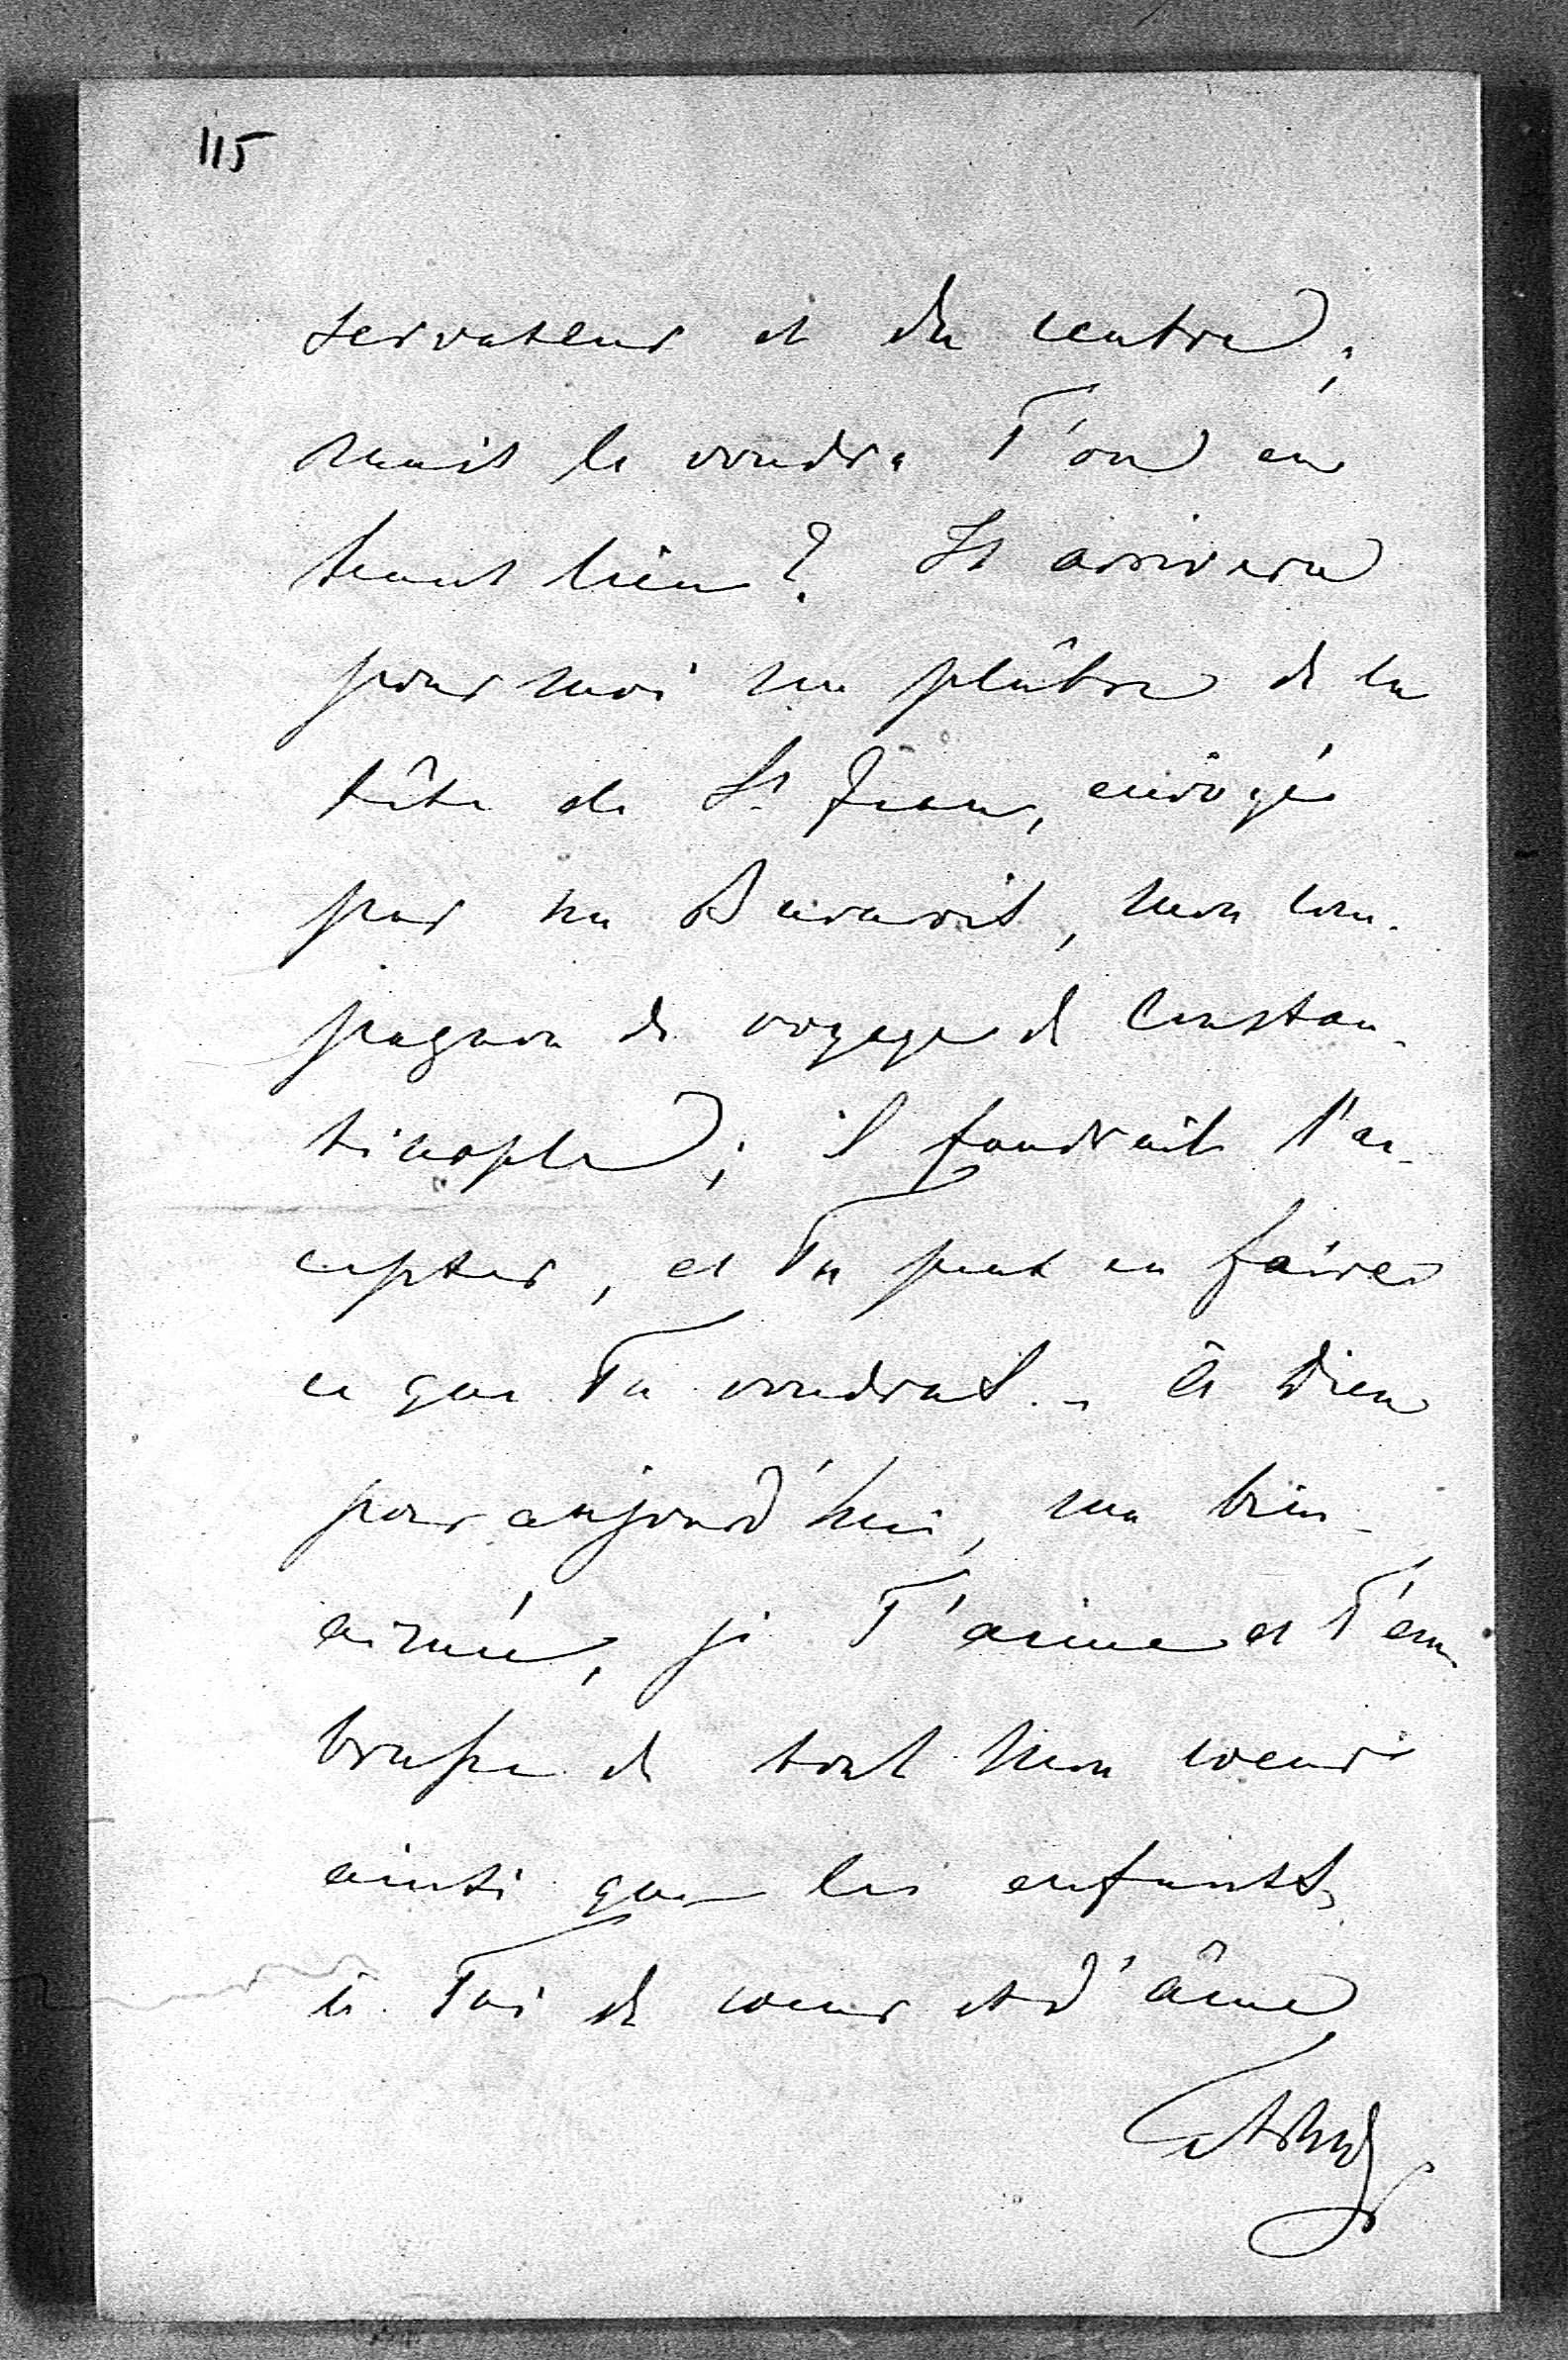 115
servateurs et du centre;
mais le voudra T'on en
haut lieu? Il arrivera
pour moi un plâtre de la
tête de St Jean, envoyé
par un Bavarois, mon com-
pagnon de voyage de Constan-
tinople; il faudrait l'ac-
cepter, et Tu peux en faire
ce que Tu voudras. - à Dieu
pour aujourd'hui, ma bien-
aimée, je T'aime et T'em-
brasse de tout mon coeur
ainsi que les enfants,
à Toi de coeur et d'âme